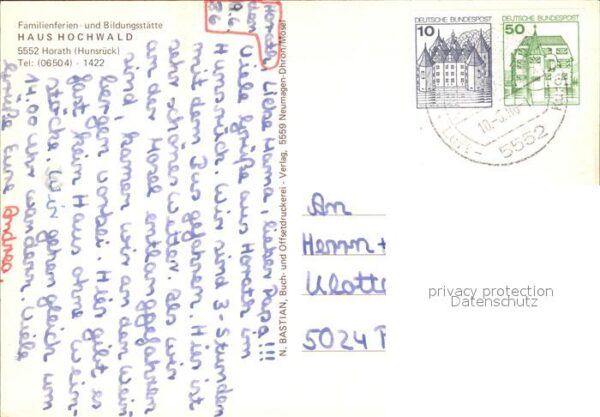 Familienferien- und Bildungsstätte
HAUS HOCHWALD
5552 Horath (Hunsrück)
Tel: (06504) - 1422
Horath,
den
9.6.
86
Liebe Mama, lieber Papa!!!
Viele Grüße aus Horath im
Hunsrück. Wir sind 3-Stunden
mit dem Bus gefahren. Hier ist
sehr schönes Wetter. Als wir
an der Mosel entlanggefahren
sind, kamen wir an den Wein-
bergen vorbei. Hier gibt es
fast kein Haus ohne Wein-
stöcke. Wir gehen gleich um
14.00 Uhr wandern. Viele
Grüße Eure Andrea.
N. BASTIAN, Buch- und Offsetdruckerei - Verlag, 5559 Neumagen-Dhron/Mosel
DEUTSCHE BUNDESPOST
10
DEUTSCHE BUNDESPOST
50
5552
An
Herrn +
Ulott
5024 P
privacy protection
Datenschutz